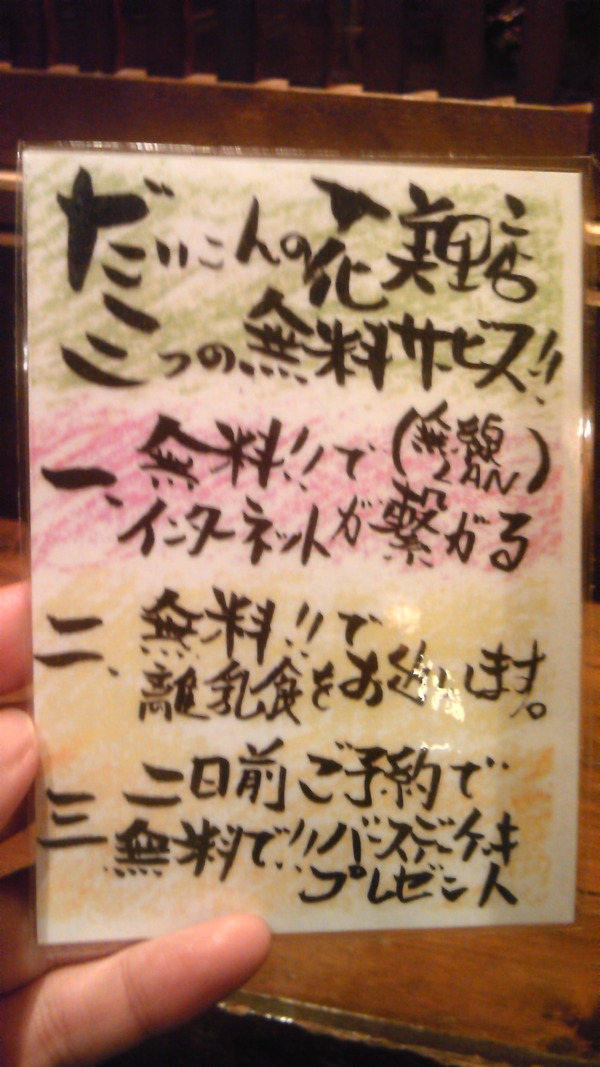 だいこんの花 美里店
三つの無料サービス!!
一、無料!!で(無線LAN)
インターネットが繋がる
二、無料!!で
離乳食をお造りします。
三、二日前ご予約で
無料で!!バースデーケーキ
プレゼント